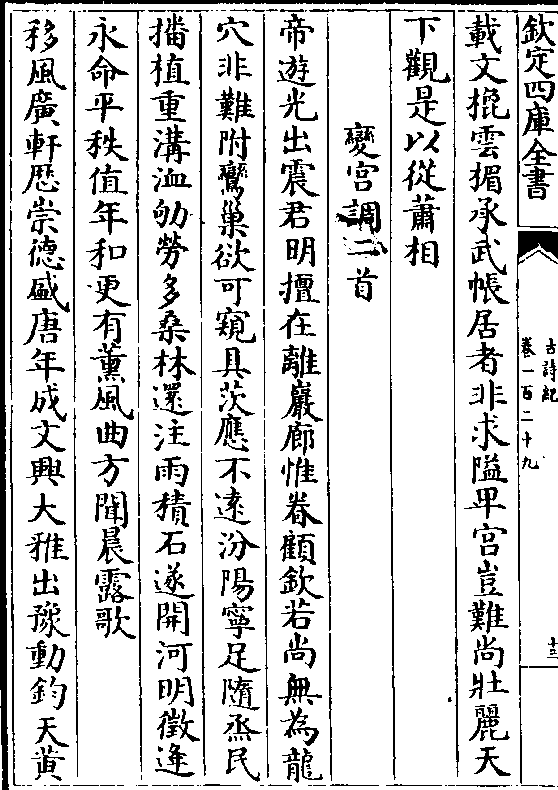 欽定四庫全書
古詩紀
卷一百二十九
十三
載文棍雲楣承武帳居者非求隘卑宮豈難尚壯麗天
下觀是以從蕭相
變宮調二首
帝遊光出震君明擅在離巖廊惟眷顧欽若尚無為龍
穴非難附鸞巢欲可窺具茨應不遠汾陽寧足隨烝民
播植重溝洫劬勞多桑林還注雨積石遂開河明徵逢
永命平秩值年和更有薰風曲方聞晨露歌
移風廣軒厯崇德盛唐年成文興大雅出豫動鈞天黄